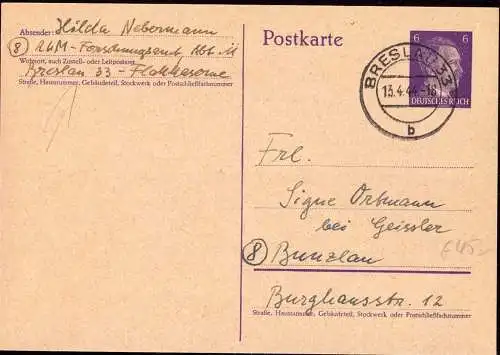 Absender: Hilda Nebermann
(8) RLM-Forschungsamt Abt. M
Wohnort, auch Zustell- oder Leitpostamt
Breslau 33 - Flakkaserne
Straße, Hausnummer, Gebäudeteil, Stockwerk oder Postschließfachnummer
Postkarte
6 6
DEUTSCHES REICH
BRESLAU 33
13.4.44-18
b
Frl.
Signe Ortmann
bei Geissler
(8) Bunzlau
Burghausstr. 12
Straße, Hausnummer, Gebäudeteil, Stockwerk oder Postschließfachnummer